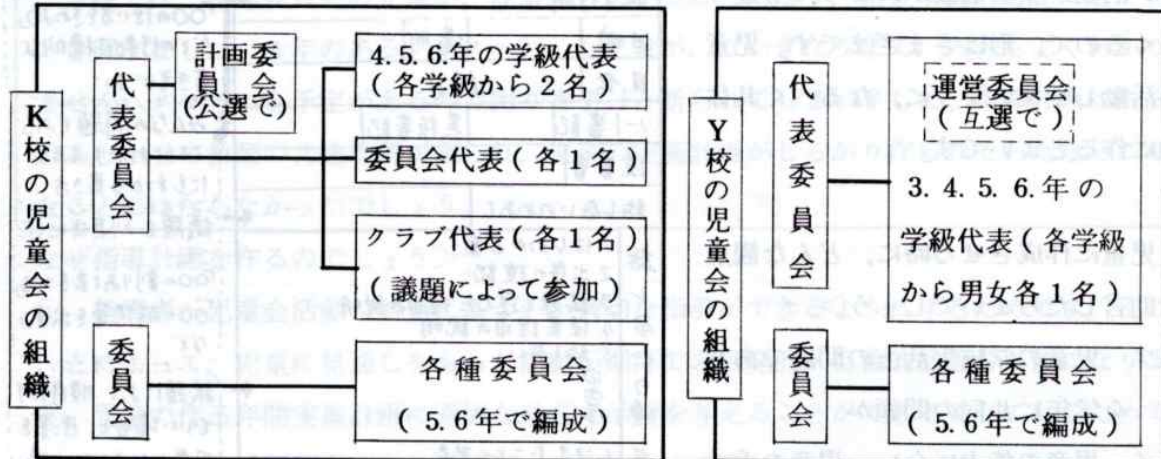 K校の児童会の組織
代表委員会
計画委員会
(公選で)
4.5.6.年の学級代表
(各学級から2名)
委員会代表(各1名)
クラブ代表(各1名)
(議題によって参加)
委員会
各種委員会
(5.6年で編成)
Y校の児童会の組織
代表委員会
運営委員会
(互選で)
3.4.5.6.年の
学級代表(各学級
から男女各1名)
委員会
各種委員会
(5.6年で編成)